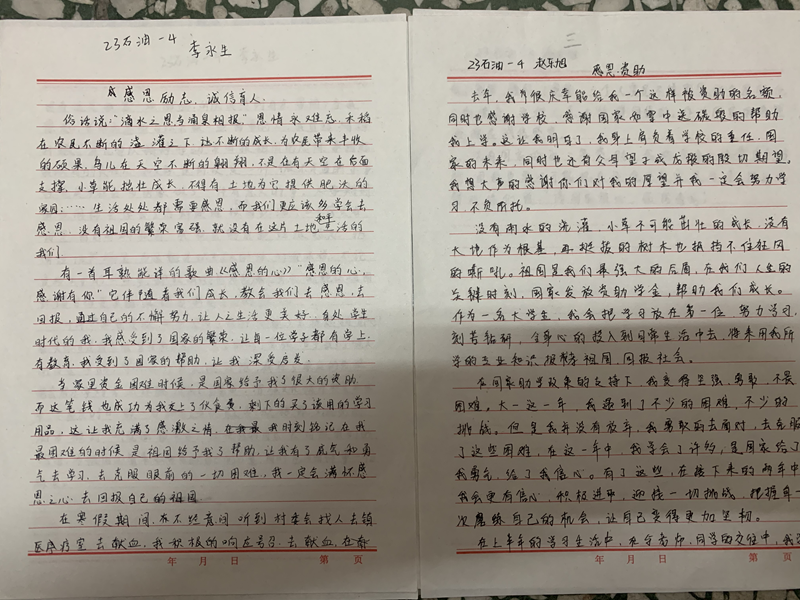 23石油-4 李永生
感恩励志,诚信育人.
俗话说:“滴水之恩当涌泉相报”恩情永难忘.禾稻
在农民不断的浇灌之下让不断的成长,为农民带来丰收
的硕果,鸟儿在天空不断的翱翔,不是在有天空在后面
支撑,小草能独壮成长,不得有土地为它提供肥沃的
家园;……生活处处都需要感恩,而我们更应该多学会去
感恩,没有祖国的繁荣富强,就没有在这片土地和平生活的
我们.
有一首耳熟能详的歌曲《感恩的心》“感恩的心,
感谢有你”它伴随着我们成长,教会我们去感恩,去
回报,通过自己的不懈努力,让人之生活更美好,身处学生
时代的我,我感受到了国家的繁荣,让每一位学子都有学上,
有教育,我受到了国家的帮助,让我深受启发.
当家里资金困难时候,是国家给予我了很大的资助
而这笔钱也成功为我交上了伙食费,剩下的买了该用的学习
用品,这让我充满了感激之情,在我最我时刻铭记在我
最困难的时候是祖国给予我了帮助,让我有了底气和勇
气去学习,去克服眼前的一切困难,我一定会满怀感
恩之心,去回报自己的祖国
在寒假期间,在不经意间听到村委会找人去镇
医疗室去献血,我积极的响应号召去献血,在
年 月 日 第 页
三
23石油-4 赵东旭 感恩·资助
去年,我并很庆幸能给我一个这样被资助的名额,
同时也感谢学校,感谢国家如雪中送碳般的帮助
我上学。这让我明白了,我身上肩负着学校的重任,国
家的未来,同时也还有父母望子成龙般的殷切期望,
我想大声的感谢你们对我的厚望并我一定会努力学
习,不负所托。
没有雨水的浇灌,小草不可能茁壮的成长,没有
大地作为根基,再挺拔的树木也抵挡不住狂风
的嘶吼。祖国是我们最强大的后盾,在我们人生的
关键时刻,国家发放资助学金,帮助我们成长。
作为一名大学生,我会把学习放在第一位,努力学习,
刻苦钻研,全身心的投入到日常生活中去,将来用我所
学的专业知识报答祖国,回报社会。
在国家助学政策的支持下,我变得坚强,勇敢,不畏
困难。大一这一年,我遇到了不少的困难,不少的
挑战。但是我并没有放弃,我勇敢的去面对,去克服
了这些困难,在这一年中,我学会了许多,是国家给了
我勇气,给了我信心。有了这些,在接下来的两年中
我会更有信心,积极进取,迎接一切挑战,把握每一
次磨练自己的机会,让自己变得更加坚韧。
在上半年的学习生活中,在与老师,同学的交往中,我
年 月 日 第 页